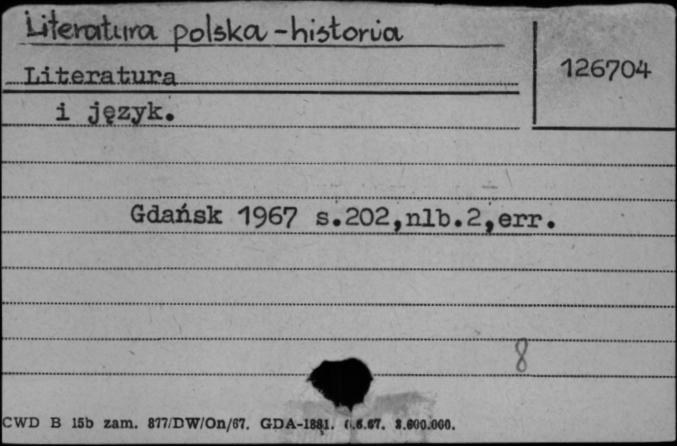 Literatura polska - historia
126704
Literatura
i język.
Gdańsk 1967 s.202,nlb.2,err.
8
CWD B 15b zam. 877/DW/On/67. GDA-1881. 6.67. 2.600.000.